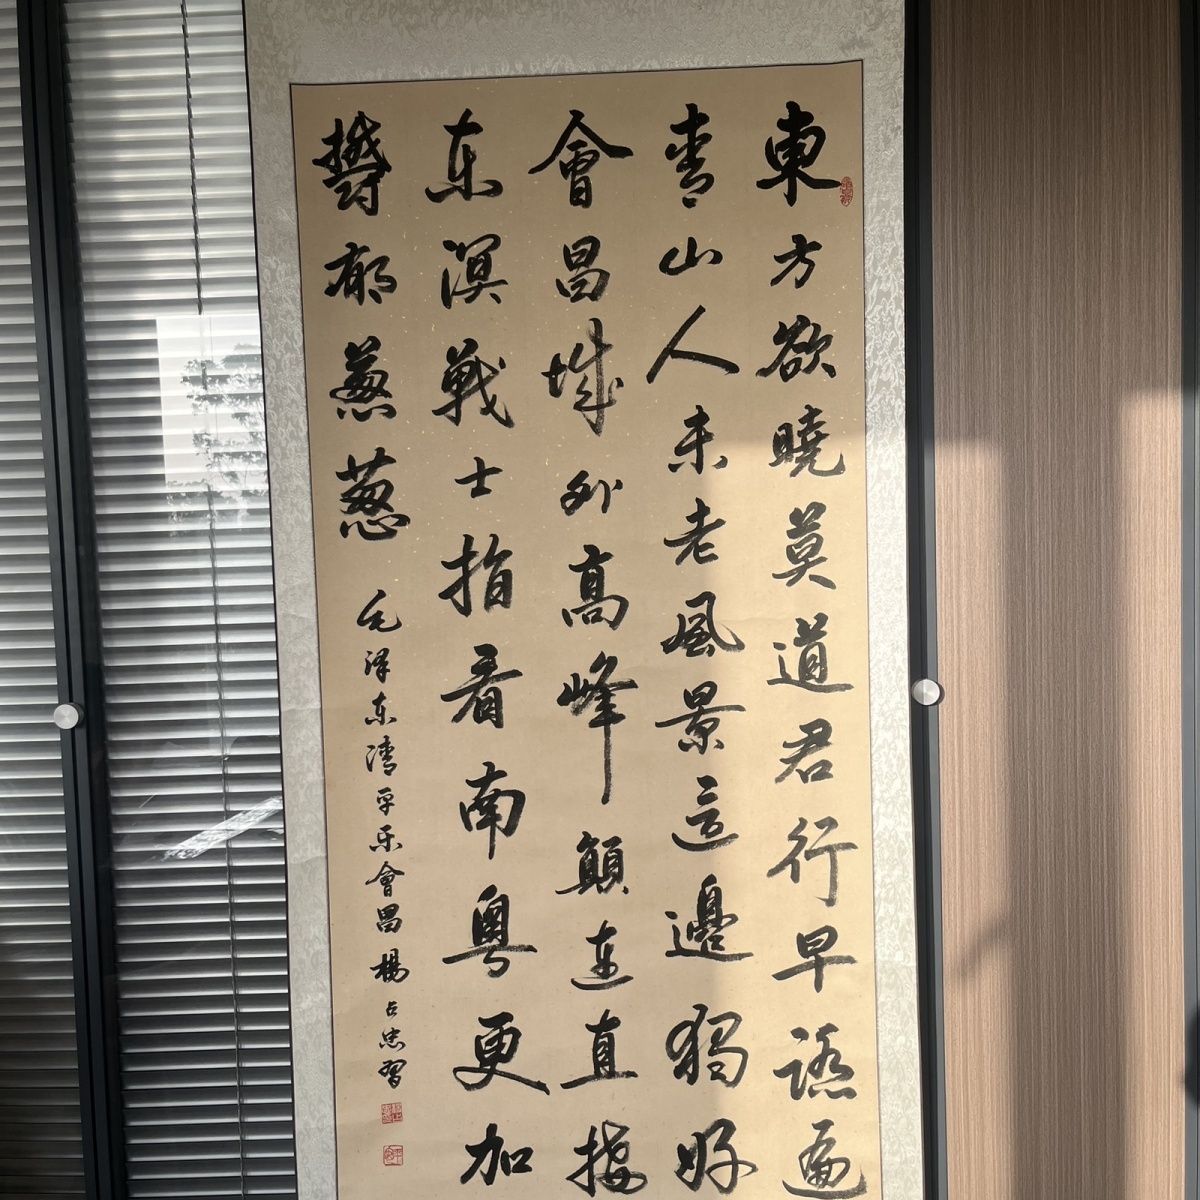 東方欲曉莫道君行早踏遍
青山人未老風景這邊獨好
會昌城外高峰顛連直接
东溟戰士指看南粵更加
鬱郁葱葱
毛泽东清平乐會昌楊占忠習